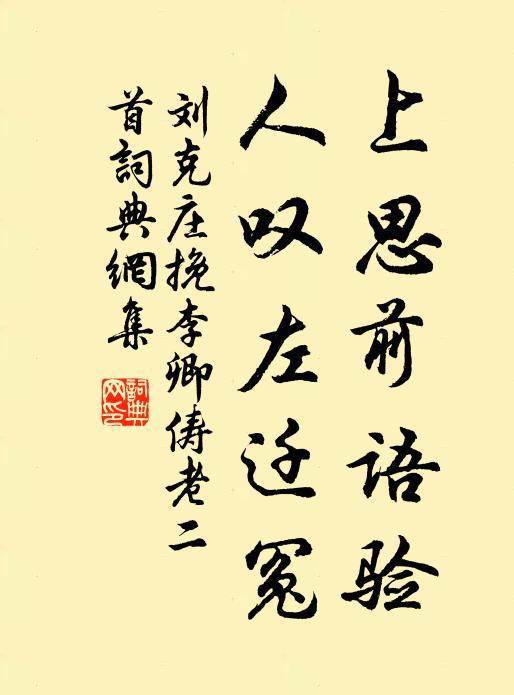 上思前语验
人叹左迁冤
刘克庄挽李卿俦老二
首詞典網集
詞典网印